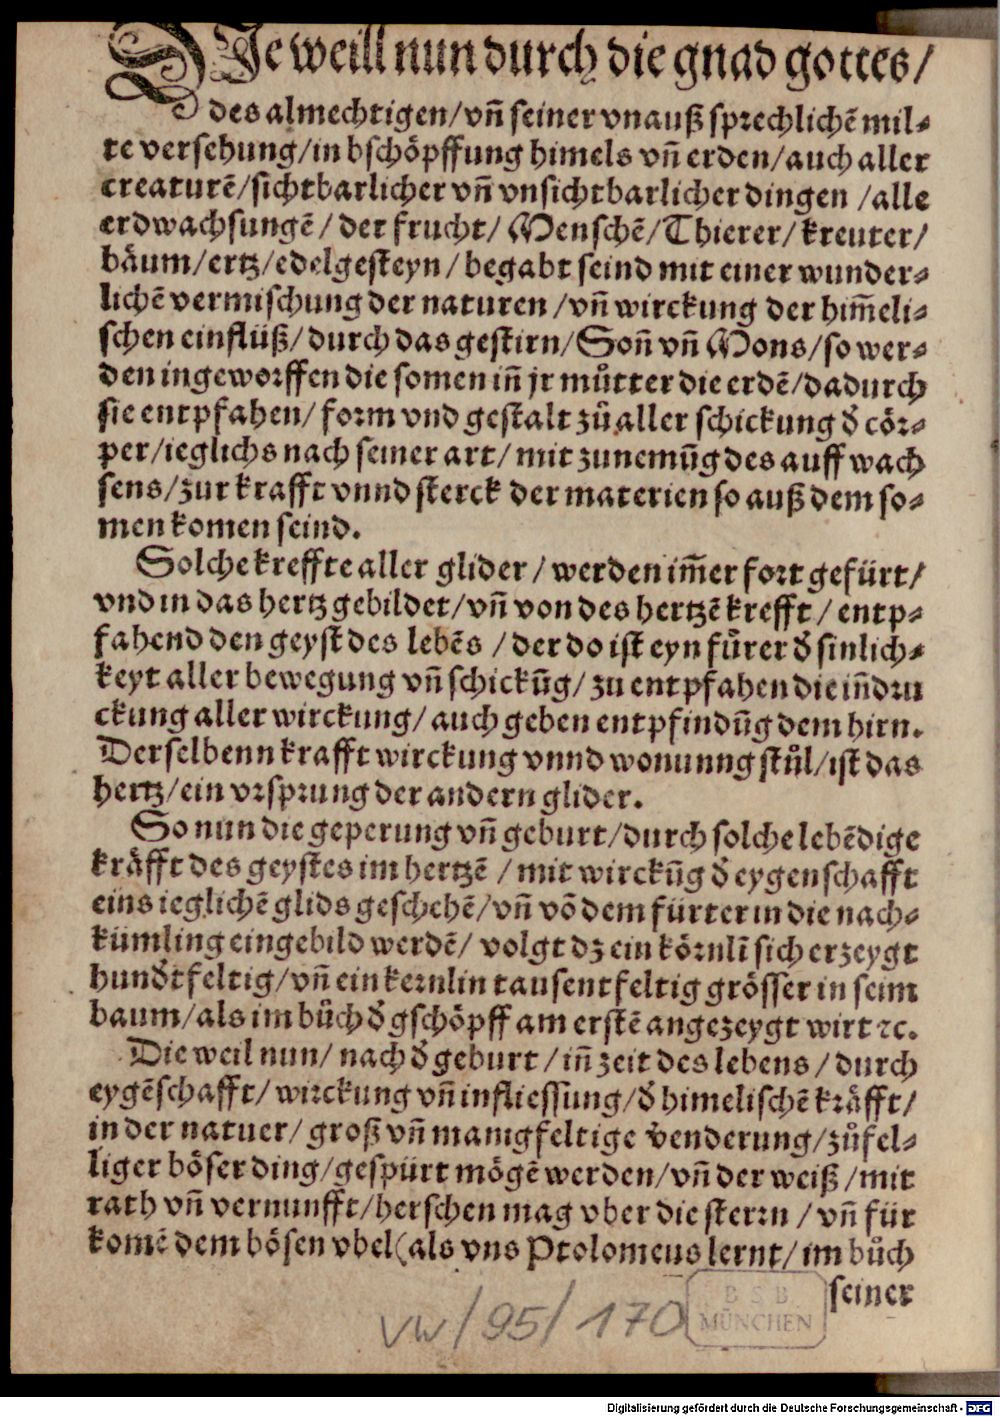 DIe weill nun durch die gnad gottes/
des almechtigen/vñ seiner vnauß sprechlichẽ mil⸗
te versehung/in bschöpffung himels vñ erden/auch aller
creaturẽ/sichtbarlicher vñ vnsichtbarlicher dingen /alle
erdwachsungẽ/ der frucht/ Menschẽ/Thierer/ kreuter/
bäum/ertz/edelgesteyn/begabt seind mit einer wunder⸗
lichẽ vermischung der naturen /vñ wirckung der him̃eli⸗
schen einflüß/ durch das gestirn/Soñ vñ Mons/so wer⸗
den ingeworffen die somen iñ jr můtter die erdẽ/dadurch
sie entpfahen/ form vnd gestalt zů aller schickung d̕ cör⸗
per/ieglichs nach seiner art/ mit zunemũg des auff wach
sens/zur krafft vnnd sterck der materien so auß dem so⸗
men komen seind.
Solche kreffte aller glider / werden im̃er fort gefürt/
vnd in das hertz gebildet/vñ von des hertzẽ krefft / entp⸗
fahend den geyst des lebẽs /der do ist eyn fürer d̕ sinlich⸗
keyt aller bewegung vñ schickũg/ zu entpfahen die iñdru
ckung aller wirckung/auch geben entpfindũg dem hirn.
Derselbenn krafft wirckung vnnd wonunng stůl/ist das
hertz/ein vrsprung der andern glider.
So nun die geperung vñ geburt/durch solche lebẽdige
kräfft des geystes im hertzẽ /mit wirckũg d̕ eygenschafft
eins ieglichẽ glids geschehẽ/vñ võ dem fürter in die nach⸗
kümling eingebild werdẽ/ volgt dz ein körnlĩ sich erzeygt
hund̕tfeltig/vñ ein kernlin tausentfeltig grösser in seim
baum/als im bůch d̕ gschöpff am erstẽ angezeygt wirt ꝛc.
Die weil nun/ nach d̕ geburt /iñ zeit des lebens /durch
eygẽschafft/ wirckung vñ infliessung/d̕ himelischẽ kräfft/
in der natuer/ groß vñ manigfeltige v̕enderung/zůfel⸗
liger böser ding/gespürt mögẽ werden/vñ der weiß /mit
rath vñ vernunfft/herschen mag vber die stern /vñ für
komẽ dem bösen vbel(als vns Ptolomeus lernt/im bůch
seiner
VW/95/170
B S B
MÜNCHEN
Digitalisierung gefördert durch die Deutsche Forschungsgemeinschaft - DFG